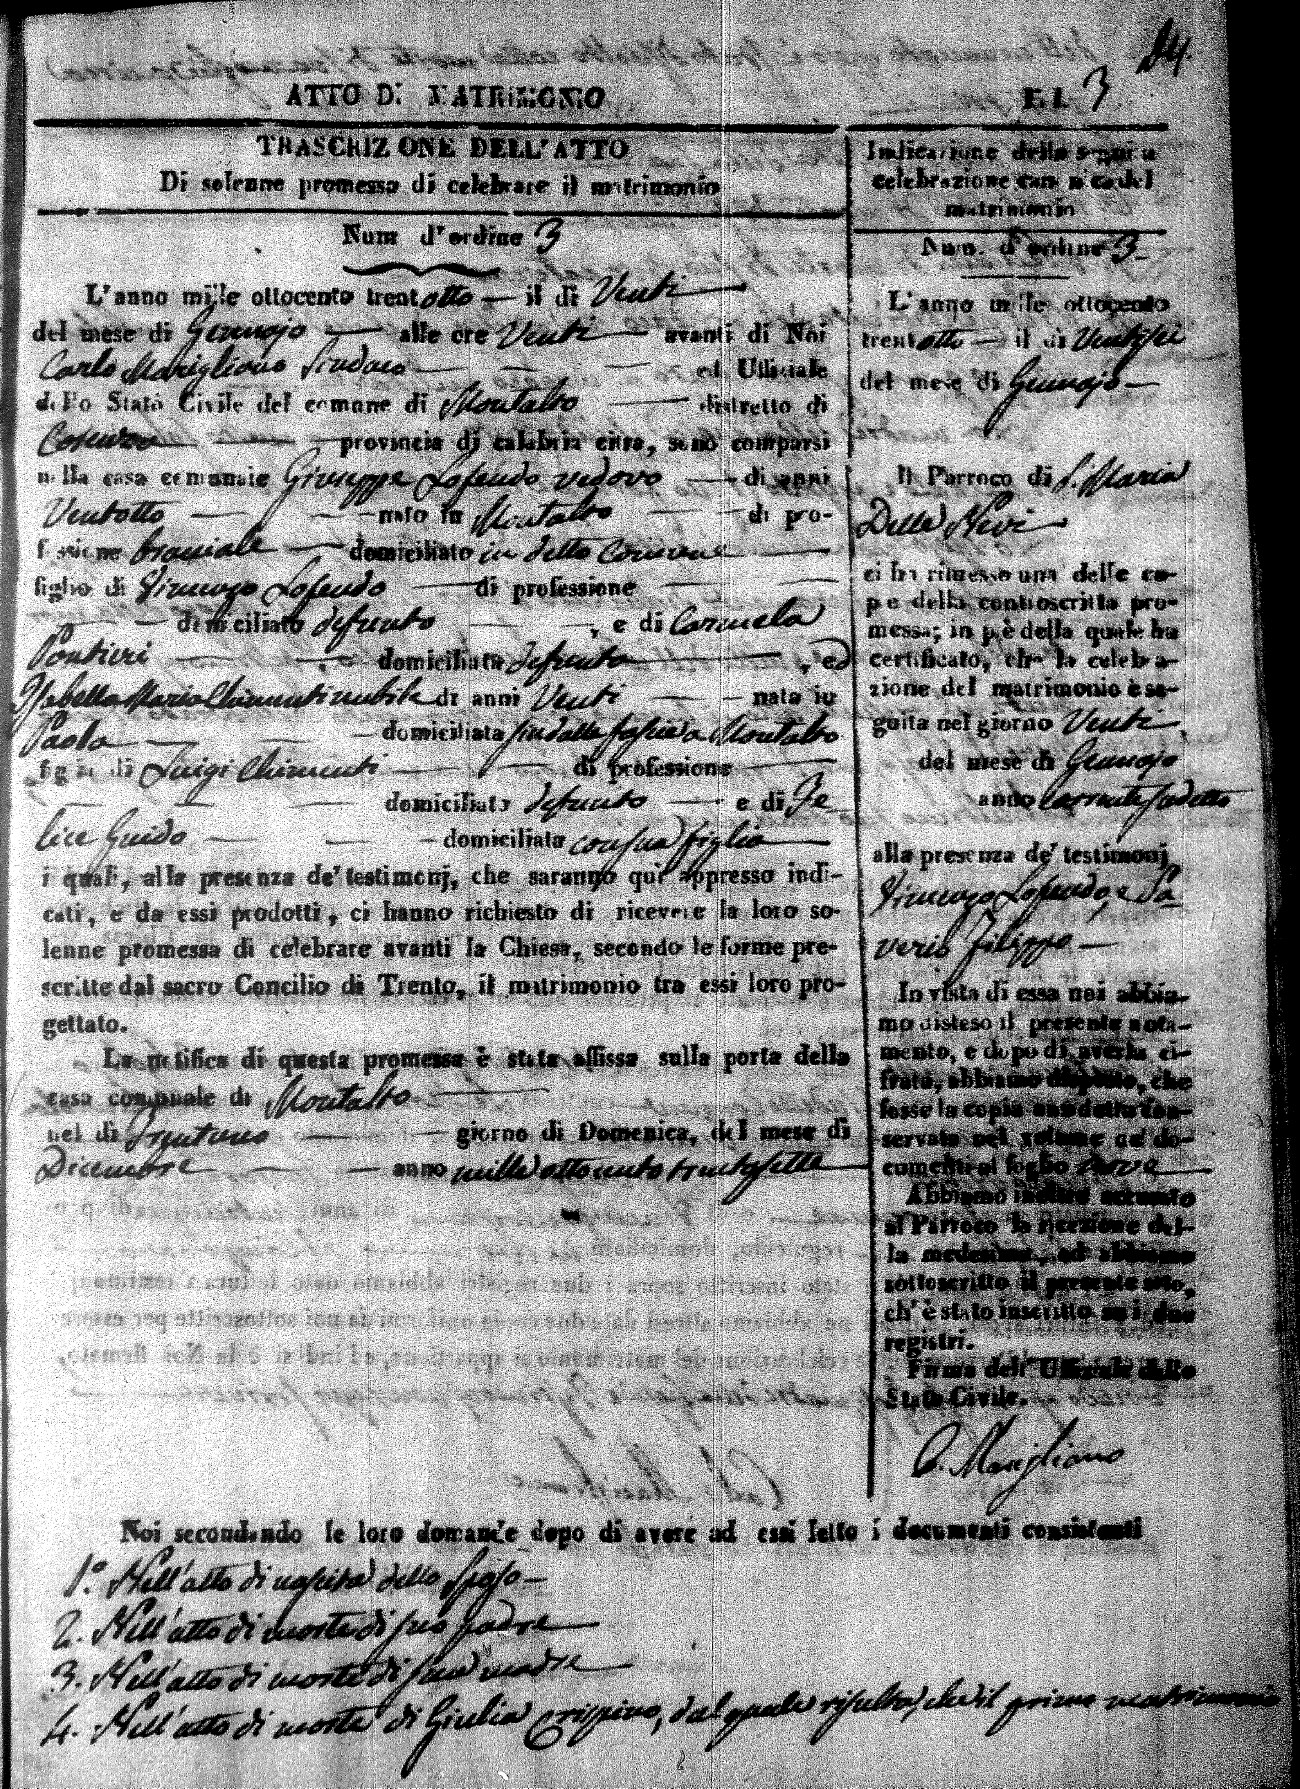 24.
ATTO DI MATRIMONIO
3
TRASCRIZIONE DELL'ATTO
Di solenne promessa di celebrare il matrimonio
Num d'ordine 3
L'anno mille ottocento trentotto — il di Venti —
del mese di Gennajo — alle ore Venti — avanti di Noi
Carlo Marigliano Sindaco — ed Uffiziale
dello Stato Civile del comune di Montalto — distretto di
Cosenza — provincia di calabria citra, sono comparsi
nella casa comunale Giuseppe Lofeudo vedovo — di anni
Ventotto — nato in Montalto — di pro-
fessione braciale — domiciliato in detto Comune —
figlio di Vincenzo Lofeudo — di professione —
— domiciliato defunto — , e di Carmela
Pontieri — , — domiciliata defunta — , ed
Isabella Maria Chimenti nubile di anni Venti — nata in
Paola — domiciliata fin dalle fascie a Montalto
figlia di Luigi Chimenti — di professione —
— domiciliato defunto — e di Fe
lice Guido — domiciliata con sua figlia —
i quali, alla presenza de' testimonj, che saranno qui appresso indi-
cati, e da essi prodotti, ci hanno richiesto di ricevere la loro so-
lenne promessa di celebrare avanti la Chiesa, secondo le forme pre-
scritte dal sacro Concilio di Trento, il matrimonio tra essi loro pro-
gettato.
La notifica di questa promessa è stata affissa sulla porta della
casa comunale di Montalto —
nel di Trentuno — giorno di Domenica, del mese di
Dicembre — anno mille ottocento trentasette
Indicazione della seguita
celebrazione canonica del
matrimonio
Num. d'ordine 3
L'anno mille ottocento
trentotto — il di Ventisei
del mese di Gennajo —
Il Parroco di S. Maria
Della Nevi —
ci ha rimesso una delle co-
pie della controscritta pro-
messa; in piè della quale ha
certificato, che la celebra-
zione del matrimonio è se-
guita nel giorno Venti,
del mese di Gennajo
anno corrente sudetto
alla presenza de' testimonj
Vincenzo Lofeudo, e Sa
verio Filippo —
In vista di essa noi abbia-
mo disteso il presente nota-
mento, e dopo di averla ci-
frata, abbiamo disposto, che
fosse la copia anzidetta con-
servata nel volume de' do-
cumenti al foglio nove
Abbiamo inoltre accusato
al Parroco la ricezione del-
la medesima, ed abbiamo
sottoscritto il presente atto,
ch' è stato inscritto sui due
registri.
Firma dell' Uffiziale dello
Stato Civile.
C. Marigliano
Noi secondando le loro domande dopo di avere ad essi letto i documenti consistenti
1.° Nell'atto di nascita dello sposo —
2. Nell'atto di morte di suo padre
3. Nell'atto di morte di sua madre
4. Nell'atto di morte di Giulia Crispino, dal quale risulta, che il primo matrimonio